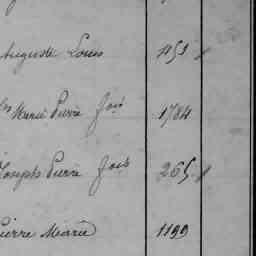 Auguste Louis 451
Marie Pierre Jois 1784
Joseph Pierre Jois 265
Pierre Marie 1199